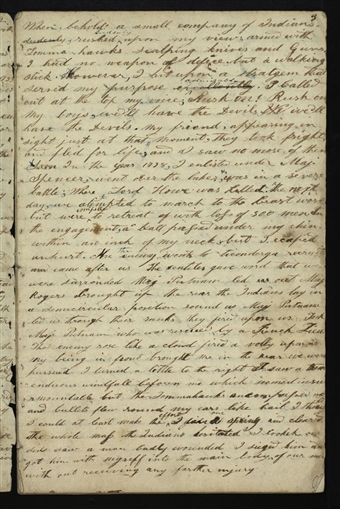 3
When behold a small company of Indians
rushed upon my view armed with
Tomma hawks Scalping knives and Guns
I had no weapon of defice but a walking
stick However, I hit upon a Stratgem that
servid my purpose I called
out at the top my voice, Rush on! Rush on
my boys, we'll have the Devils, We we'll
have the Devils. My friend, appearing in
sight just at that moment, they took fright
and and I saw no more of them
In the year 1758, I enlisted under Maj
Spencer, went over the lake, was in a severe
battle, Where Lord Howe was killed, The next
day we attempted to march to the breast work
but were compelled to retreat with loss of 500 men In
the engagement a ball passed under my chin
within an inch of my neck but I escaped
unhurt. An enemy to Ticonderoga
came after us The gave word that we
were surrounded Maj Putnam led us and Maj
Rogers brought up the rear the Indians lay in
a semicircular position as Maj Putnam
led us through their ranks they fire upon us
Maj Putnam who was by a French
The enemy rose like a cloud fired a volly upon us
my being in front brought me in the rear we were
pursued I turned a little to the right I saw a
windfall before me which seemed insur
mountable but the Tommahawks
and bullets flew round my ears like hail I
I could at last make the effort I one spring clear
the whole the Indians I looked one
side saw a man badly wounded I
got him with into the main body of our men
with out receiving any farther injury